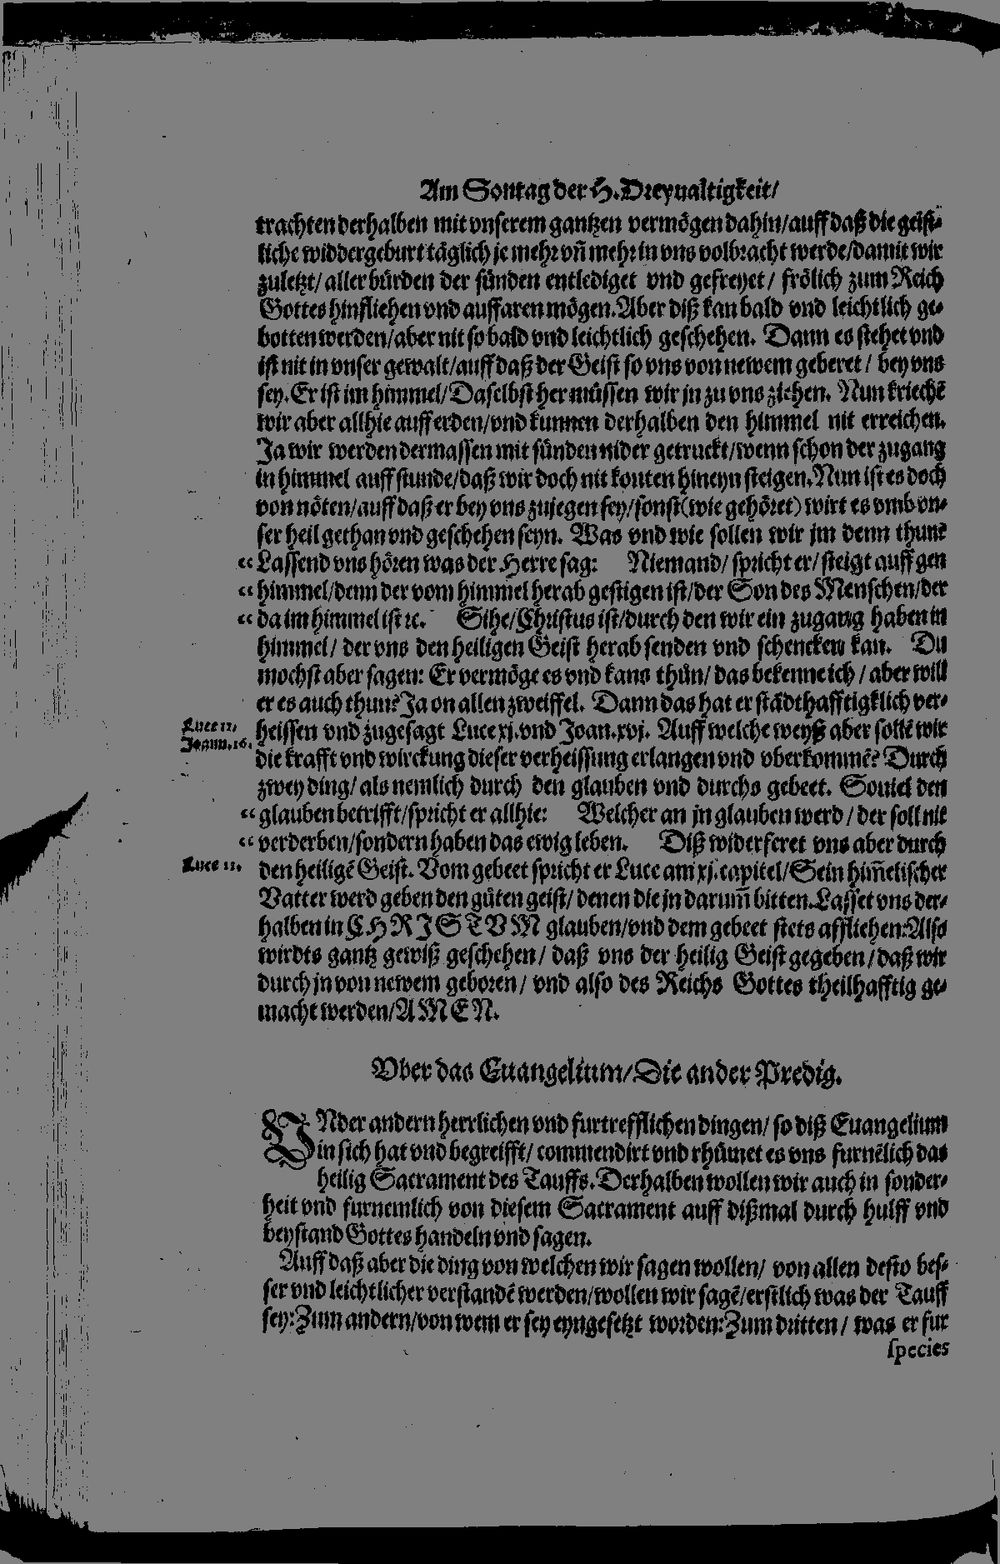 Am Sontag der H. Dreyualtigkeit/
trachten derhalben mit vnserem gantzen vermögen dahin/auff daß die geist-
liche widdergeburt täglich je mehr vñ mehr in vns volbracht werde/damit wir
zuletzt/ aller bürden der sünden entlediget vnd gefreyet/ frölich zum Reich
Gottes hinfliehen vnd auffaren mögen. Aber diß kan bald vnd leichtlich ge-
botten werden/aber nit so bald vnd leichtlich geschehen. Dann es stehet vnd
ist nit in vnser gewalt/auff daß der Geist so vns von newem geberet/ bey vns
sey. Er ist im himmel/Daselbst her müssen wir jn zu vns ziehen. Nun kriechẽ
wir aber allhie auff erden/vnd kunnen derhalben den himmel nit erreichen.
Ja wir werden dermassen mit sünden nider getruckt/wenn schon der zugang
in himmel auff stunde/daß wir doch nit konten hineyn steigen. Nun ist es doch
von nöten/auff daß er bey vns zujegen sey/sonst (wie gehöret) wirt es vmb vn-
ser heil gethan vnd geschehen seyn. Was vnd wie sollen wir jm denn thunẽ
“ Lassend vns hören was der Herre sag: Niemand/ spricht er/ steigt auff gen
“ himmel/denn der vom himmel herab gestigen ist/der Son des Menschen/der
“ da im himmel ist ꝛc. Sihe/Christus ist/durch den wir ein zugang haben in
himmel/ der vns den heiligen Geist herab senden vnd schencken kan. Du
mochst aber sagen: Er vermöge es vnd kans thün/ das bekenne ich/ aber will
er es auch thun? Ja on allen zweiffel. Dann das hat er städthafftigklich ver-
Luce 11.
Joann. 16.
heissen vnd zugesagt Luce xj. vnd Joan. xvj. Auff welche weyß aber sollẽ wir
die krafft vnd wirckung dieser verheissung erlangen vnd vberkommẽ? Durch
zwey ding/ als nemlich durch den glauben vnd durchs gebeet. Souiel den
“ glauben betrifft/spricht er allhie: Welcher an jn glauben werd/ der soll nit
“ verderben/sondern haben das ewig leben. Diß widerferet vns aber durch
Luce 11.
den heiligẽ Geist. Vom gebeet spricht er Luce am xj. capitel/Sein him̃elischer
Vatter werd geben den güten geist/ denen die jn darum̃ bitten. Lasset vns der-
halben in CHRISTVM glauben/vnd dem gebeet stets affliehen: Also
wirdts gantz gewiß geschehen/ daß vns der heilig Geist gegeben/daß wir
durch jn von newem geboren/ vnd also des Reichs Gottes theilhafftig ge-
macht werden/AMEN.
Vber das Euangelium/Die ander Predig.
VNder andern herrlichen vnd furtrefflichen dingen/ so diß Euangelium
in sich hat vnd begreifft/ commendirt vnd rhümet es vns furnẽlich das
heilig Sacrament des Tauffs. Derhalben wollen wir auch in sonder-
heit vnd furnemlich von diesem Sacrament auff dißmal durch hulff vnd
beystand Gottes handeln vnd sagen.
Auff daß aber die ding von welchen wir sagen wollen/ von allen desto bes-
ser vnd leichtlicher verstandẽ werden/wollen wir sagẽ/erstlich was der Tauff
sey: Zum andern/von wem er sey eyngesetzt worden: Zum dritten/ was er fur
species